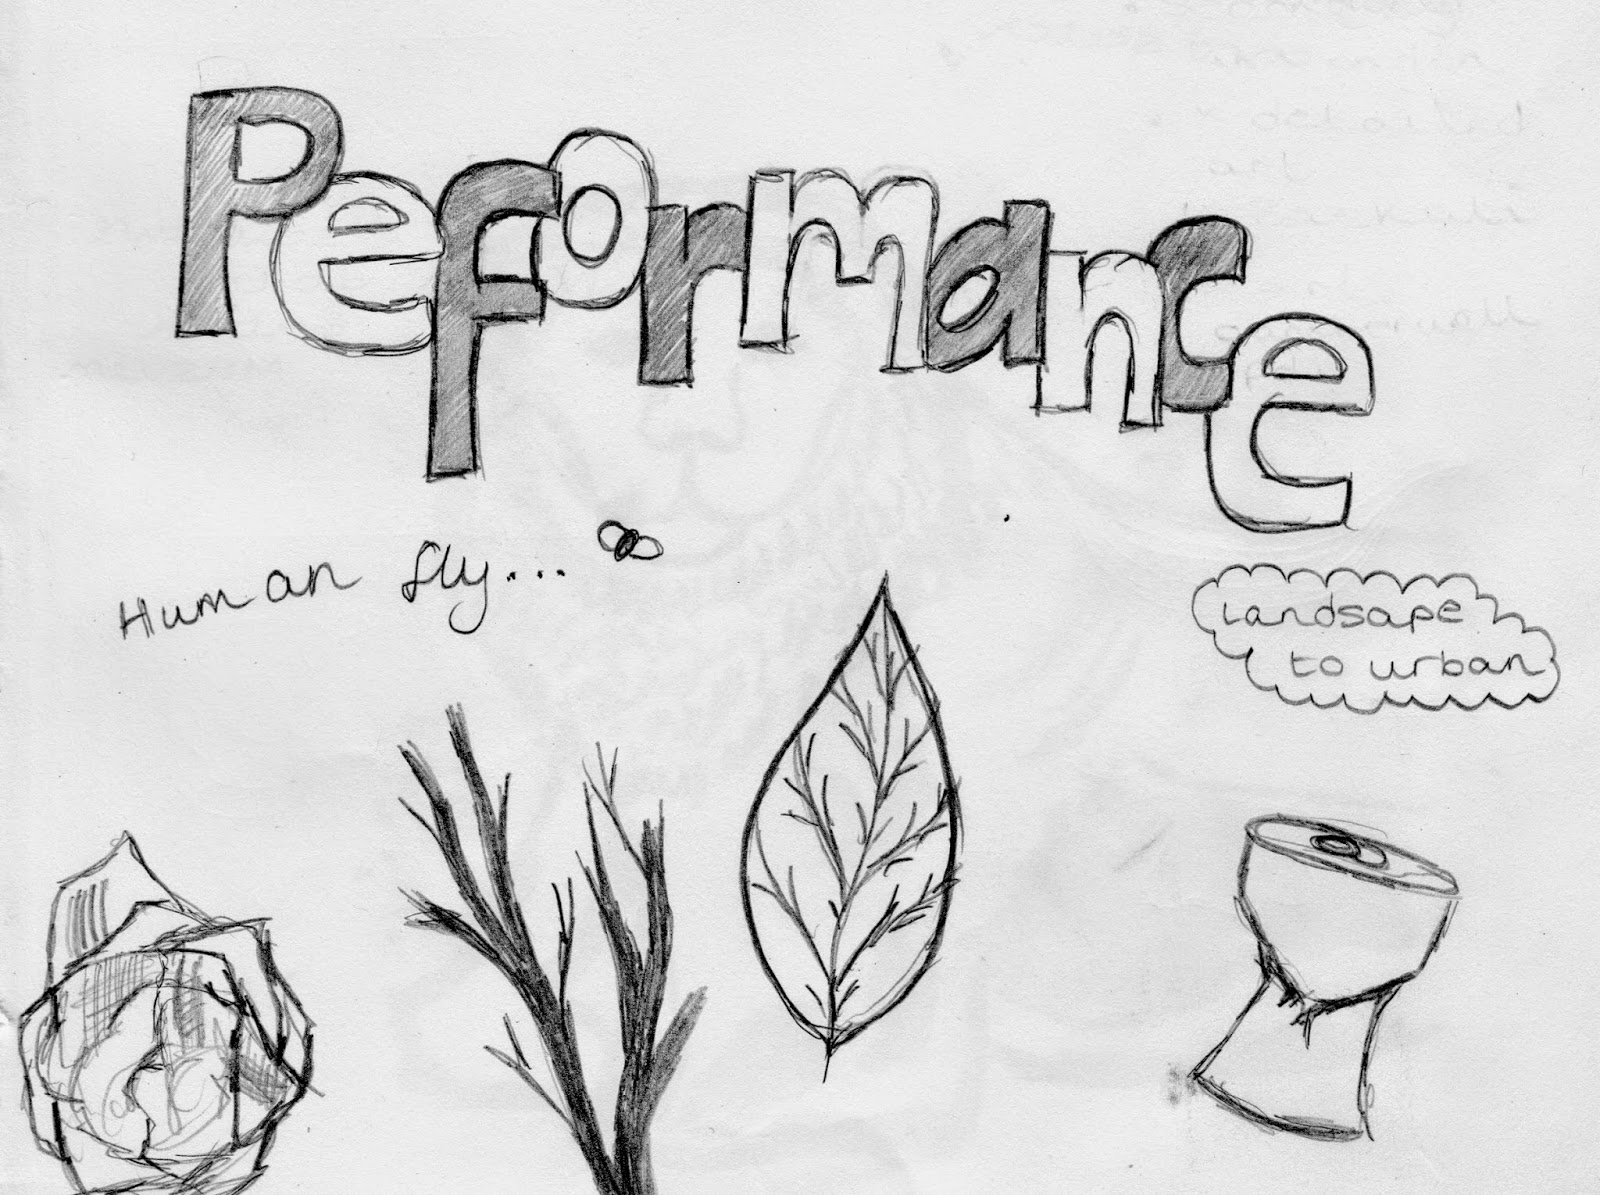 Peformance
Human fly...
Landsape
to urban